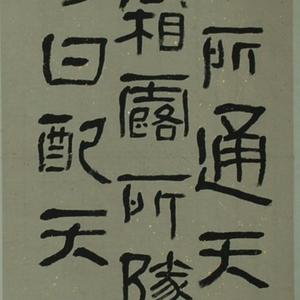 所通天
霜露所隊
曰配天